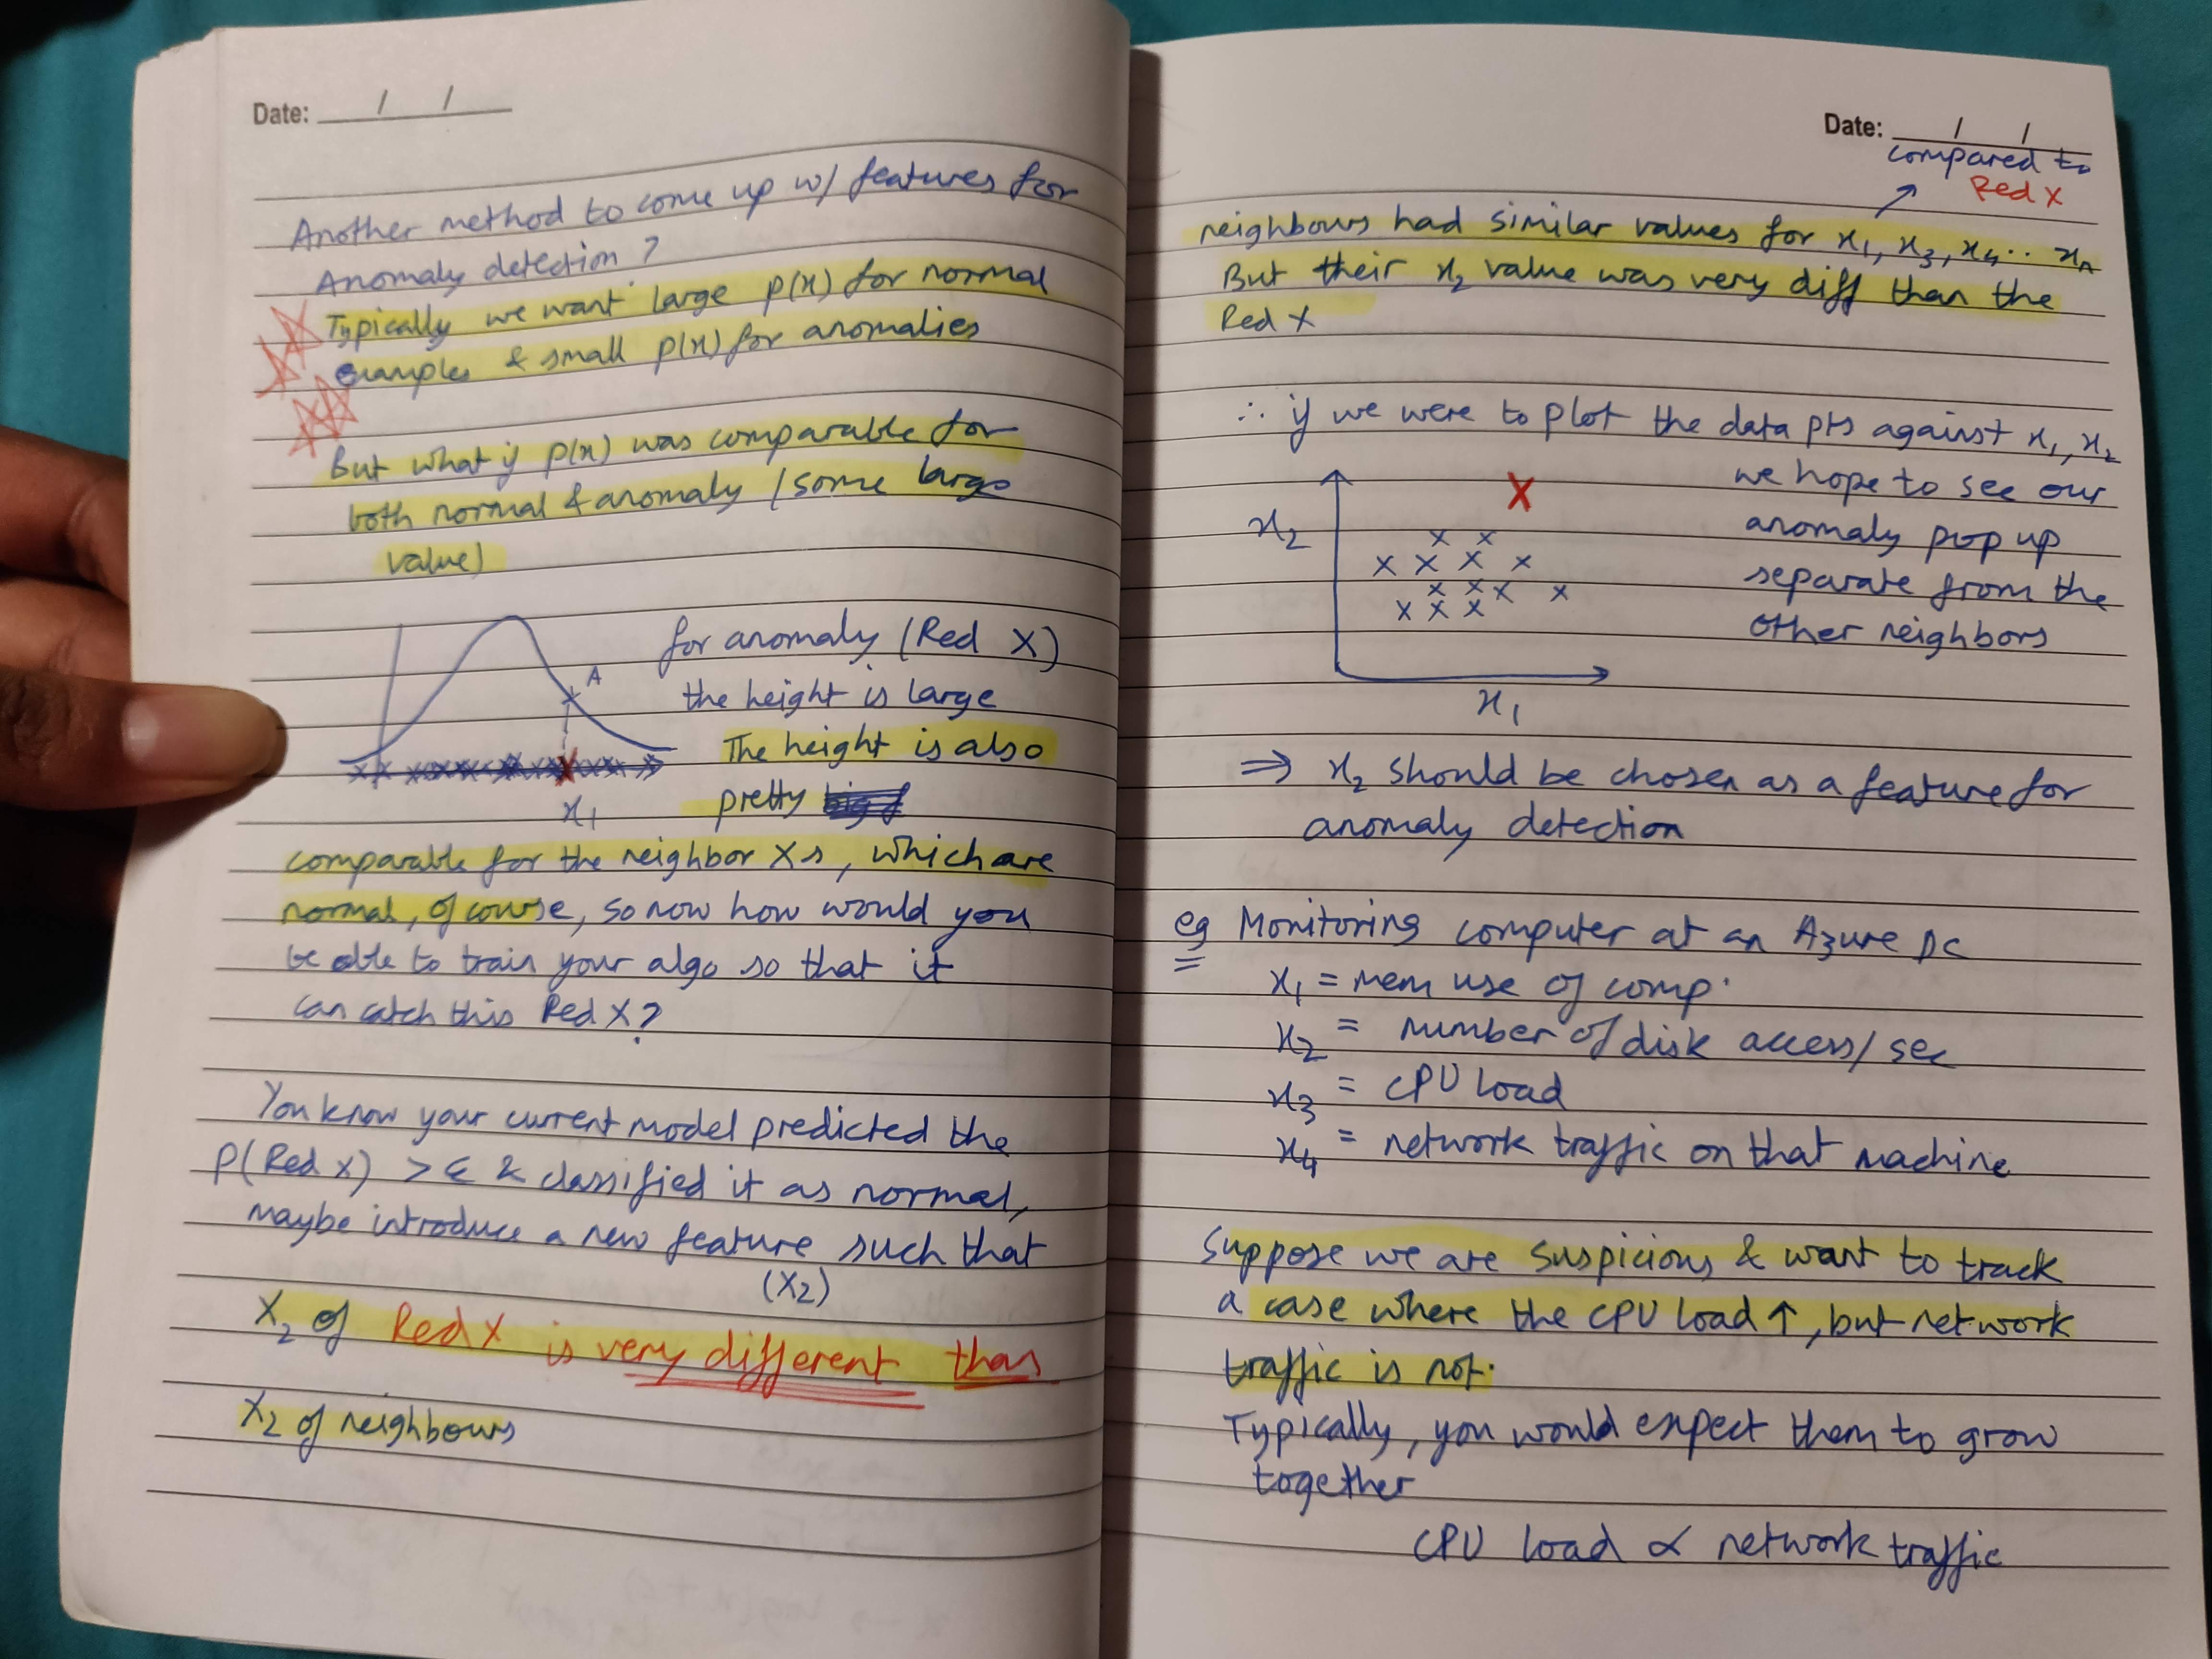 Date: / /
Another method to come up w/ features for
Anomaly detection?
Typically we want large p(x) for normal
examples & small p(x) for anomalies
But what if p(x) was comparable for
both normal & anomaly (some large
value)
for anomaly (Red X)
the height is large
The height is also
pretty
A
x1
comparable for the neighbor Xs, which are
normal, of course, so now how would you
be able to train your algo so that it
can catch this Red X?
You know your current model predicted the
P(Red X) > ε & classified it as normal,
maybe introduce a new feature such that
(X2)
X2 of Red X is very different than
X2 of neighbours
Date: / /
compared to
Red X
neighbours had similar values for x1, x3, x4.. xn
But their x2 value was very diff than the
Red X
∴ if we were to plot the data pts against x1, x2
we hope to see our
anomaly pop up
separate from the
other neighbors
x2
x1
⇒ x2 should be chosen as a feature for
anomaly detection
eg Monitoring computer at an Azure DC
x1 = mem use of comp.
x2 = number of disk access/sec
x3 = CPU load
x4 = network traffic on that machine
Suppose we are suspicious & want to track
a case where the CPU load ↑, but network
traffic is not.
Typically, you would expect them to grow
together
CPU load ∝ network traffic